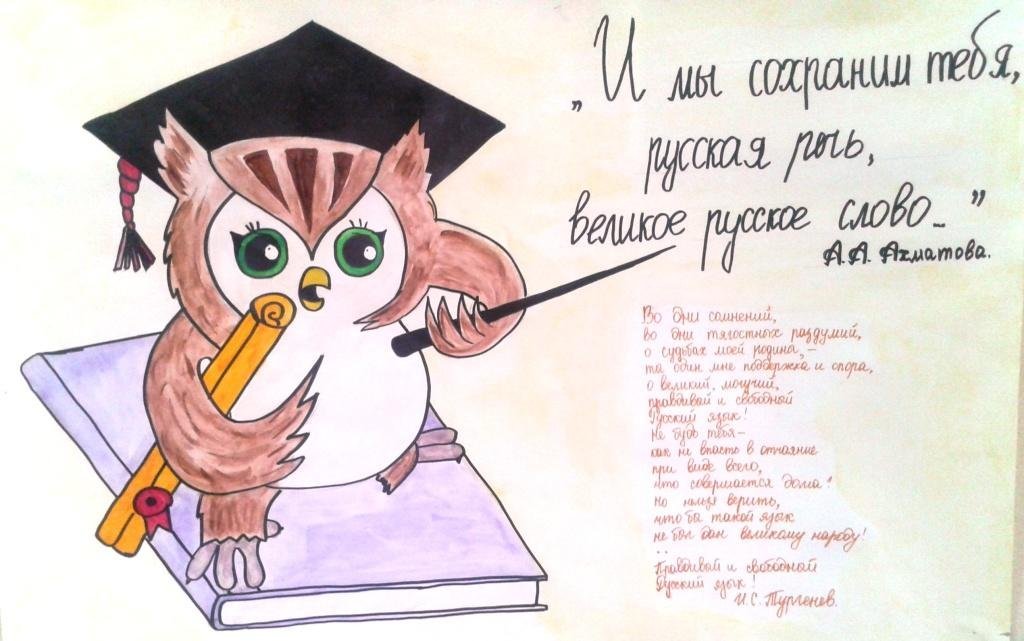 „И мы сохраним тебя,
русская речь,
великое русское слово..."
А.А. Ахматова.
Во дни сомнений,
во дни тягостных раздумий,
о судьбах моей родины, –
ты один мне поддержка и опора,
о великий, могучий,
правдивый и свободный
Русский язык!
Не будь тебя –
как не впасть в отчаяние
при виде всего,
что совершается дома?
Но нельзя верить,
что бы такой язык
не был дан великому народу!
..
Правдивый и свободный
Русский язык!
И.С. Тургенев.